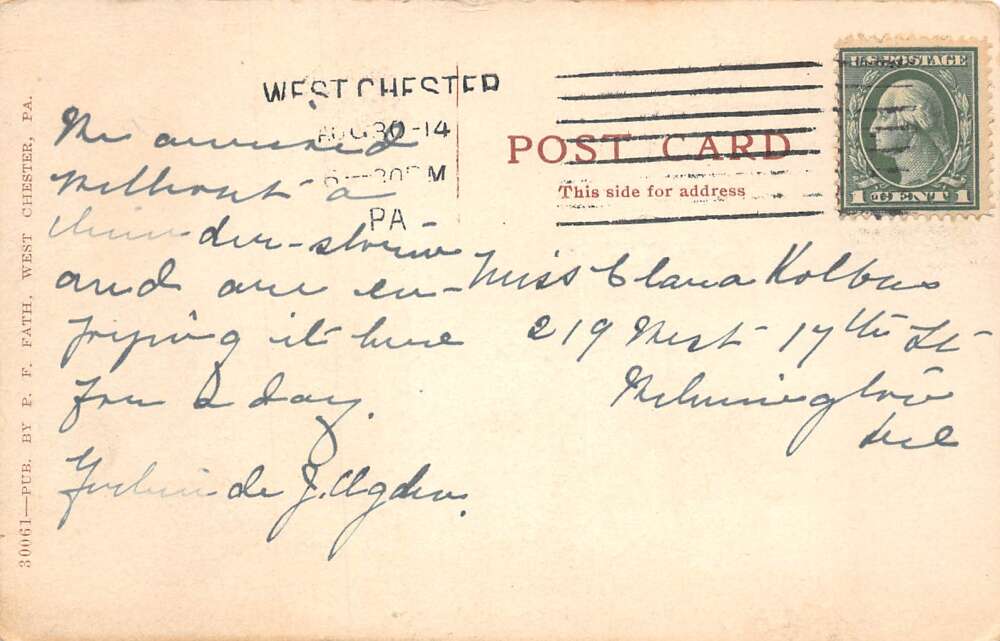 WEST CHESTER
AUG 30-14
6-30PM
PA
POST CARD
This side for address
U.S. POSTAGE
1 CENT 1
We arrived
without a
thunder-storm
and are en-
joying it here
for a day.
de J. Ogden.
Miss Clara Kolbus
219 West 17th St
Wilmington
Del
30061—PUB. BY P. F. FATH, WEST CHESTER, PA.